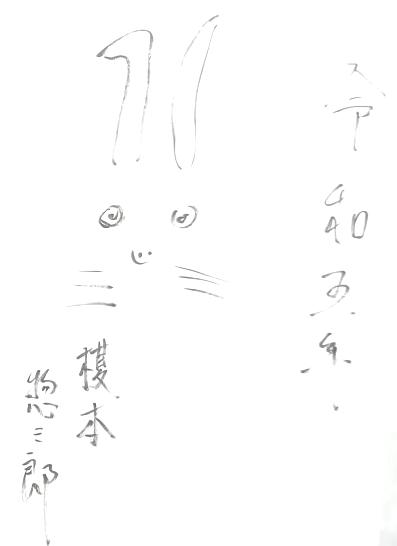 令和五年
榎本
惣三郎